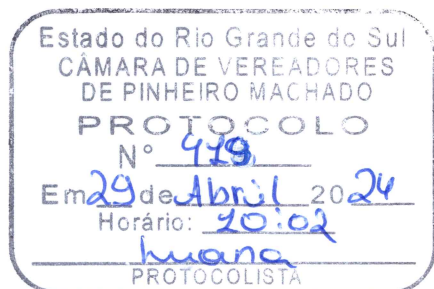 Estado do Rio Grande do Sul
CÂMARA DE VEREADORES
DE PINHEIRO MACHADO
PROTOCOLO
Nº 419
Em 29 de Abril 2024
Horário: 10:02
Luana
PROTOCOLISTA